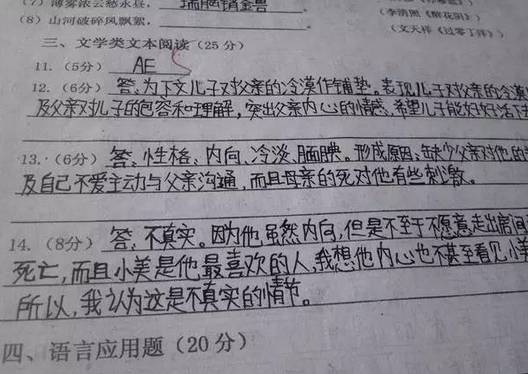 (7) 薄雾浓云愁永昼，瑞脑销金兽
(李清照《醉花阴》)
(8) 山河破碎风飘絮，
(文天祥《过零丁洋》)
三、文学类文本阅读（25分）
11.（5分） AE
12.（6分） 答、为下文儿子对父亲的冷漠作铺垫。表现儿子对父亲的冷漠
及父亲对儿子的包容和理解，突出父亲内心的情感、希望儿子能好好活下
13.（6分） 答、性格、内向、冷淡、腼腆。形成原因、缺少父亲对他的
及自己不爱主动与父亲沟通，而且母亲的死对他有些刺激。
14.（8分） 答、不真实。因为他虽然内向，但是不至于不愿意走出房间
死亡，而且小美是他最喜欢的人，我想他内心也不甚至看见小美
所以，我认为这是不真实的情节。
四、语言应用题（20分）